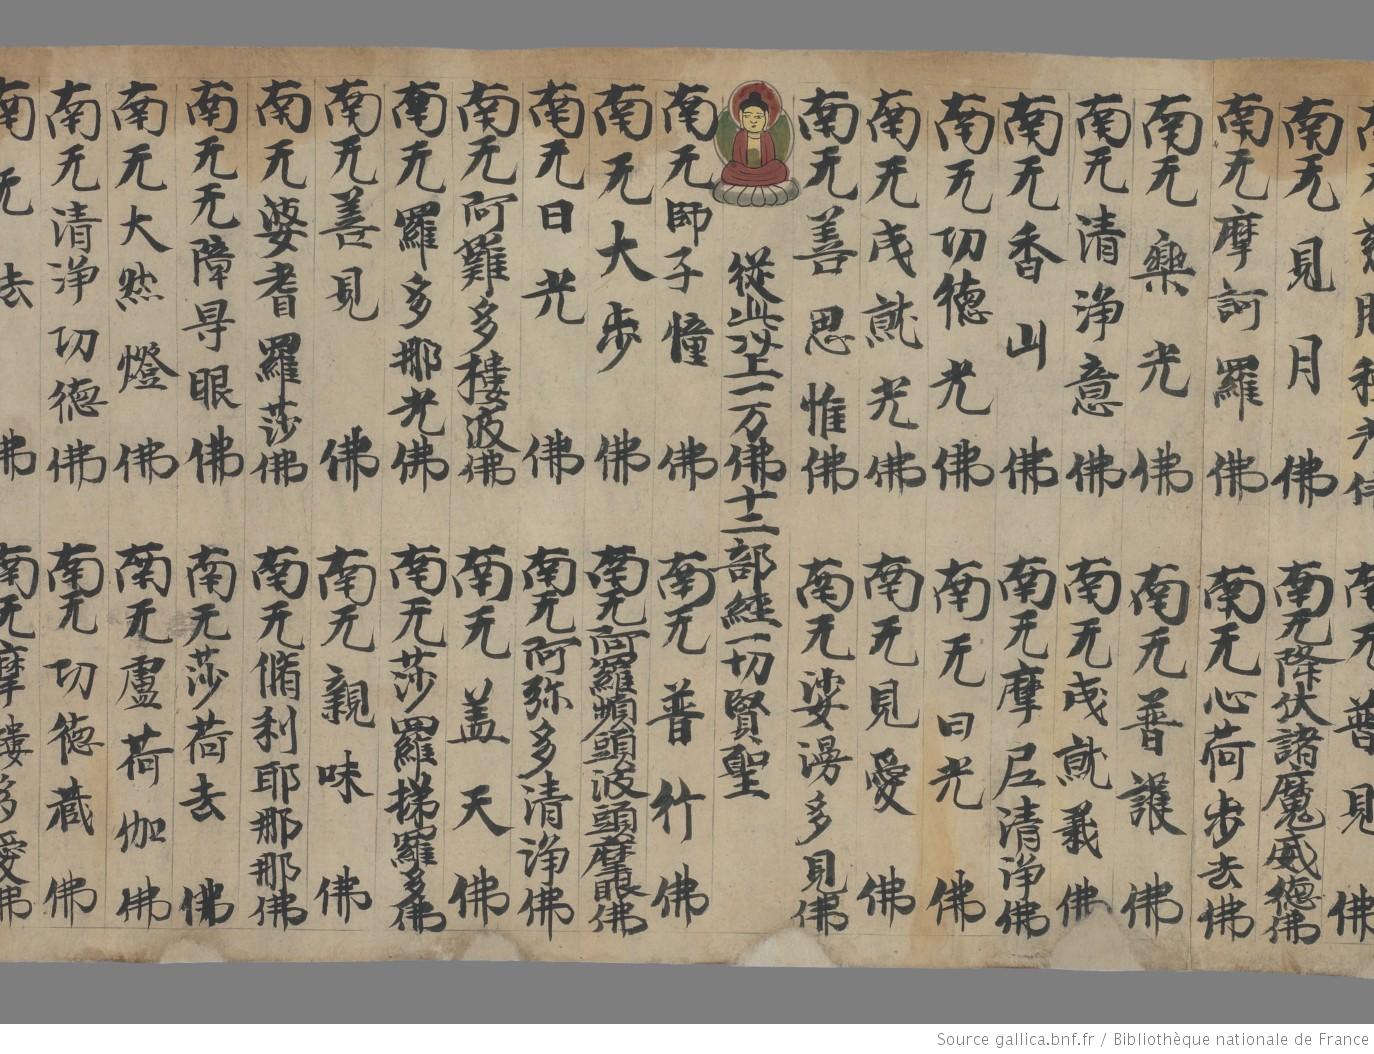 南无見月佛
南无降伏諸魔威德佛
南无摩訶羅佛
南无心荷步去佛
南无樂光佛
南无普護佛
南无清淨意佛
南无成就義佛
南无香山佛
南无摩尼清淨佛
南无功德光佛
南无日光佛
南无成就光佛
南无見愛佛
南无善思惟佛
南无娑湯多見佛
從此以上一万佛十二部經一切賢聖
南无師子幢佛
南无普行佛
南无大步佛
南无阿羅頻頭波頭摩眼佛
南无日光佛
南无阿弥多清淨佛
南无阿難多樓波佛
南无蓋天佛
南无羅多那光佛
南无莎羅梯羅多佛
南无善見佛
南无親味佛
南无婆耆羅莎佛
南无脩利耶那那佛
南无无障导眼佛
南无莎荷去佛
南无大然燈佛
南无盧荷伽佛
南无清淨功德佛
南无功德藏佛
南无去佛
南无摩樓多愛佛
Source gallica.bnf.fr / Bibliothèque nationale de France